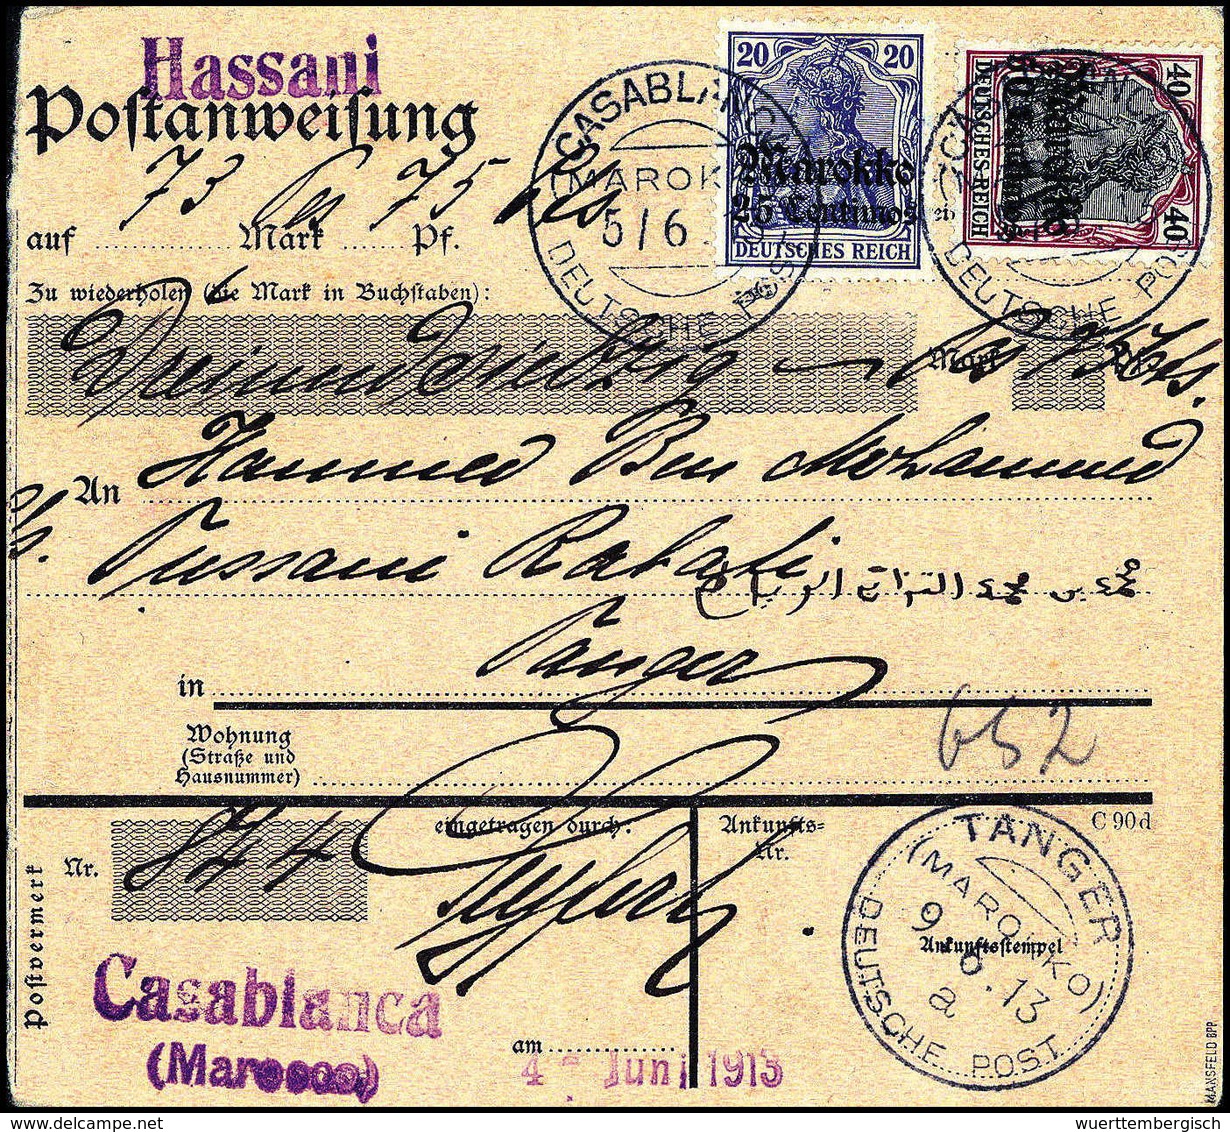 Hassani
Postanweisung
73 Ps 75 cts
auf Mark Pf.
20 20
Marokko
25 Centimos
DEUTSCHES REICH
40 40
DEUTSCHES REICH
CASABLANCA
(MAROKKO)
5/6
DEUTSCHE POST
CASABLANCA
DEUTSCHE POST
Zu wiederholen (die Mark in Buchstaben):
Dreiundsiebzig Ps 75 cts. Mark Pf.
An Hammed Ben Mohammed
Tussani Rabati
Tanger
in
Wohnung
(Straße und
Hausnummer)
652
Postvermerk
Nr. 844
eingetragen durch:
Ankunfts-
Nr.
C 90 d
TANGER
(MAROKKO)
9.6.13
a
DEUTSCHE POST
Ankunftsstempel
Casablanca
(Marocco)
am 4 - Juni 1913
MANSFELD BPP
wuerttembergisch